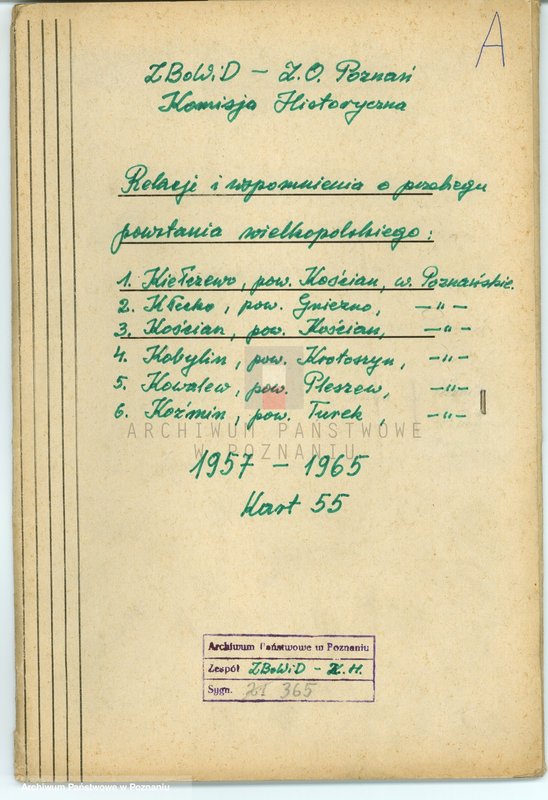 A
ZBoWiD - Z.O. Poznań
Komisja Historyczna
Relacje i wspomnienia o przebiegu
powstania wielkopolskiego:
1. Kiełczewo, pow. Kościan, w. Poznańskie.
2. Kłecko, pow. Gniezno, -"-
3. Kościan, pow. Kościan, -"-
4. Kobylin, pow. Krotoszyn, -"-
5. Kowalew, pow. Pleszew, -"-
6. Koźmin, pow. Turek, -"-
ARCHIWUM PAŃSTWOWE
W POZNANIU
1957 - 1965
Kart 55
Archiwum Państwowe w Poznaniu
Zespół ZBoWiD - K.H.
Sygn. 365
Archiwum Państwowe w Poznaniu